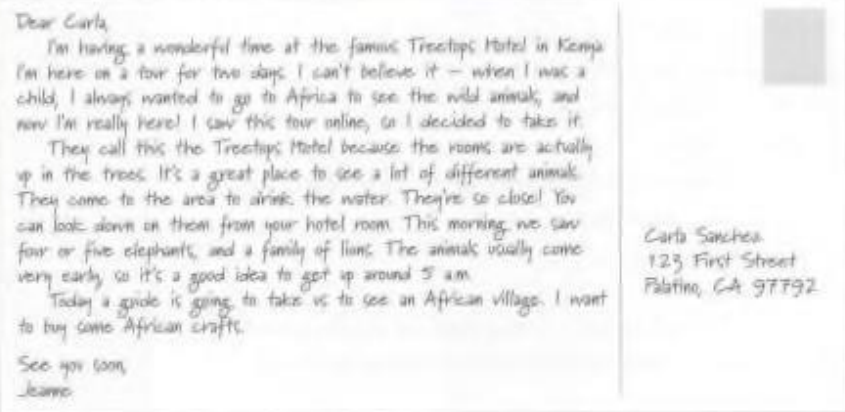 Dear Carla,
I'm having a wonderful time at the famous Treetops Hotel in Kenya.
I'm here on a tour for two days. I can't believe it — when I was a
child, I always wanted to go to Africa to see the wild animals, and
now I'm really here! I saw this tour online, so I decided to take it.
They call this the Treetops Hotel because the rooms are actually
up in the trees. It's a great place to see a lot of different animals.
They come to the area to drink the water. They're so close! You
can look down on them from your hotel room. This morning we saw
four or five elephants, and a family of lions. The animals usually come
very early, so it's a good idea to get up around 5 a.m.
Today a guide is going to take us to see an African village. I want
to buy some African crafts.
See you soon,
Jeanne
Carla Sanchez
123 First Street
Palatino, CA 97792